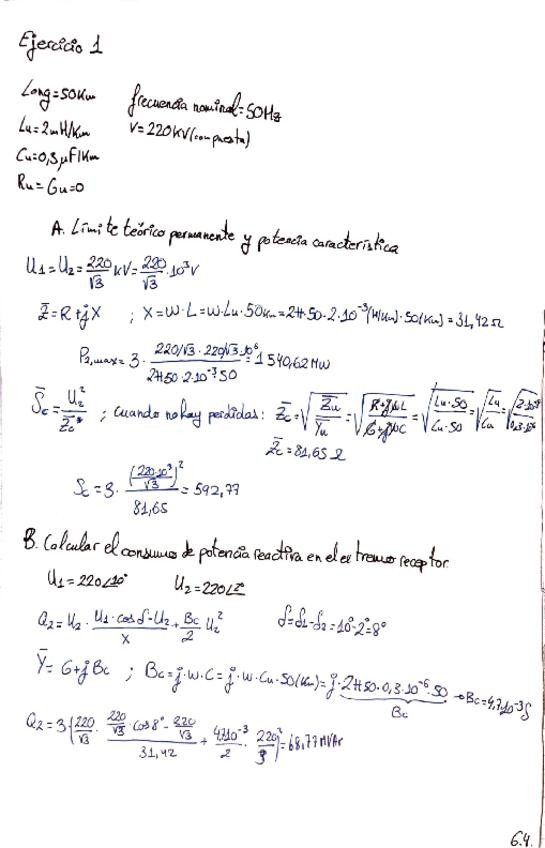 Ejercicio 1
Long=50Km frecuencia nominal=50Hz
Lu=2mH/Km V=220KV(compuesta)
Cu=0,3μF/Km
Ru=Gu=0
A. Límite teórico permanente y potencia característica
U1=U2=220/√3 KV=220/√3·10³V
Z̄=R+jX ; X=W·L=W·Lu·50Km=2π·50·2·10⁻³(H/Km)·50(Km)=31,42Ω
P2,max=3·(220/√3·220/√3·10⁶)/(2π50·2·10⁻³·50)=1540,62MW
S̄c=U2²/Z̄c* ; cuando no hay perdidas: Z̄c=√(Z̄u/Ȳu)=√((R+jωL)/(G+jωC))=√(Lu·50/Cu·50)=√(Lu/Cu)=√(2·10⁻³/0,3·10⁻⁶)
Z̄c=81,65Ω
Sc=3·(220·10³/√3)²/81,65=592,77
B. Calcular el consumo de potencia reactiva en el extremo receptor
U1=220∠10° U2=220∠2°
Q2=U2·(U1·cosδ-U2)/X+Bc/2 U2² δ=δ1-δ2=10°-2°=8°
Ȳ=G+jBc ; Bc=j·W·C=j·W·Cu·50(Km)=j·2π50·0,3·10⁻⁶·50 →Bc=4,7·10⁻³S
Bc
Q2=3(220/√3·(220/√3·cos8°-220/√3)/31,42+4,7·10⁻³/2·220²/3)=68,77MVAr
6.4.